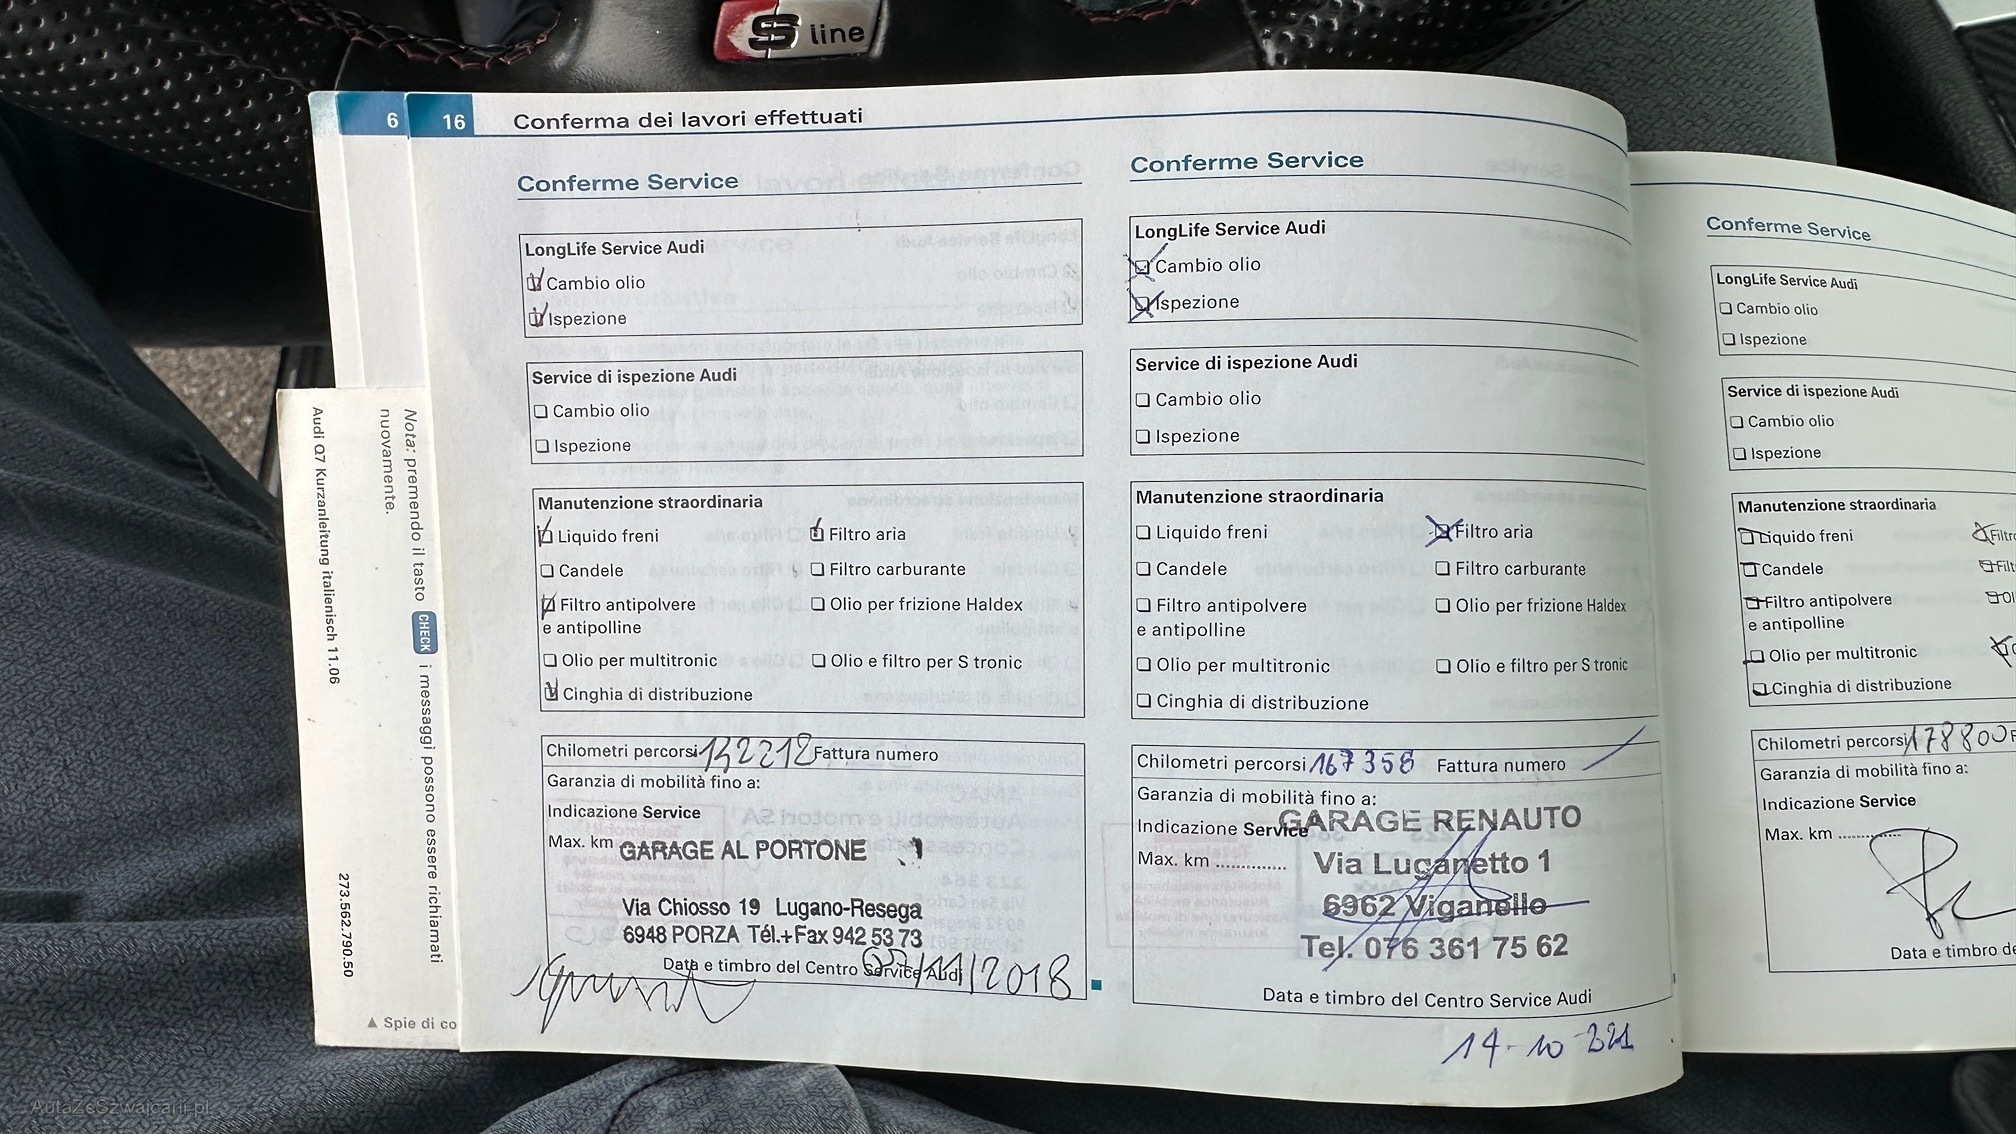 S line
6
16
Conferma dei lavori effettuati
Conferme Service
LongLife Service Audi
Cambio olio
Ispezione
Service di ispezione Audi
Cambio olio
Ispezione
Manutenzione straordinaria
Liquido freni
Filtro aria
Candele
Filtro carburante
Filtro antipolvere
e antipolline
Olio per frizione Haldex
Olio per multitronic
Olio e filtro per S tronic
Cinghia di distribuzione
Chilometri percorsi 142212 Fattura numero
Garanzia di mobilità fino a:
Indicazione Service
Max. km
GARAGE AL PORTONE
Via Chiosso 19 Lugano-Resega
6948 PORZA Tél.+Fax 942 53 73
Data e timbro del Centro Service Audi
/11/2018
Conferme Service
LongLife Service Audi
Cambio olio
Ispezione
Service di ispezione Audi
Cambio olio
Ispezione
Manutenzione straordinaria
Liquido freni
Filtro aria
Candele
Filtro carburante
Filtro antipolvere
e antipolline
Olio per frizione Haldex
Olio per multitronic
Olio e filtro per S tronic
Cinghia di distribuzione
Chilometri percorsi 167358 Fattura numero
Garanzia di mobilità fino a:
Indicazione Service
Max. km ............
GARAGE RENAUTO
Via Luganetto 1
6962 Viganello
Tel. 076 361 75 62
Data e timbro del Centro Service Audi
14-10
Conferme Service
LongLife Service Audi
Cambio olio
Ispezione
Service di ispezione Audi
Cambio olio
Ispezione
Manutenzione straordinaria
Liquido freni
Candele
Filtro antipolvere
e antipolline
Olio per multitronic
Cinghia di distribuzione
Chilometri percorsi 178800
Garanzia di mobilità fino a:
Indicazione Service
Max. km ............
Data e timbro
Nota: premendo il tasto CHECK i messaggi possono essere richiamati
nuovamente.
Audi Q7 Kurzanleitung italienisch 11.06
273.562.790.50
▲ Spie di co
AutaZeSzwajcarii.pl